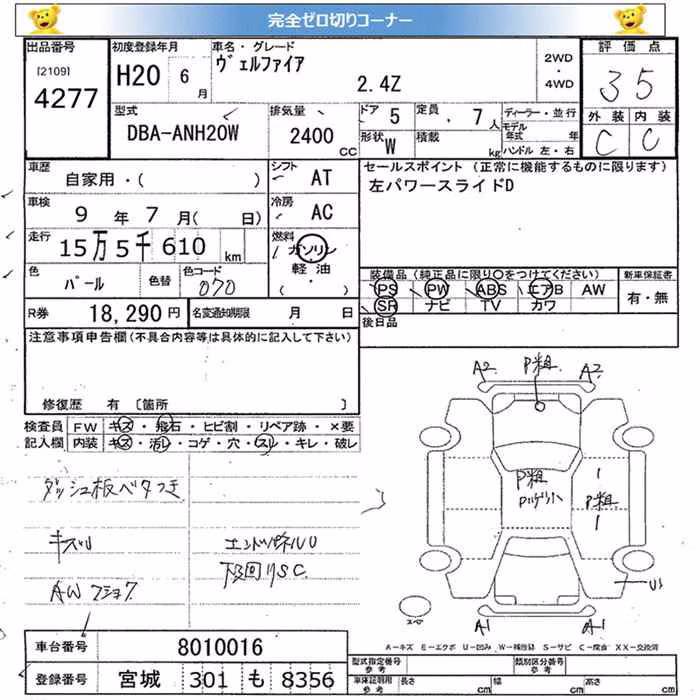 完全ゼロ切りコーナー
出品番号
[2109]
4277
初度登録年月
H20 6 月
車名・グレード
ヴェルファイア
2.4Z
2WD
・
4WD
評価点
3 5
外装 内装
C C
型式
DBA-ANH20W
排気量
2400 CC
ドア 5
形状 W
定員 7 人
積載 kg
ディーラー・並行
モデル年式 年
ハンドル 左・右
車歴
自家用・( )
シフト AT
車検
9 年 7 月 ( 日)
冷房 AC
走行
15万5千610 km
燃料
ガソリン
軽油
( ・ )
色
パール
色替
色コード
070
R券 18,290 円
名変通知期限 月 日
セールスポイント (正常に機能するものに限ります)
左パワースライドD
装備品 (純正品に限り○をつけてください)
PS PW ABS エアB AW
SR ナビ TV カワ
新車保証書
有・無
後日品
注意事項申告欄(不具合内容等は具体的に記入して下さい)
修復歴 有 [箇所 ]
検査員
記入欄
FW キズ・飛石・ヒビ割・リペア跡・×要
内装 キズ・汚レ・コゲ・穴・スレ・キレ・破レ
ダッシュ板ベタつき
キズU
AWフショク
エンドパネルU
下回りSC
A2 P粗 A2
P粗
P粗
U1
A1 A1
スペア
A-キズ E-エクボ U-凹み W-補修跡 S-サビ C-腐食 XX-交換済
車台番号 8010016
登録番号 宮城 301 も 8356
型式指定番号
参考
類別区分番号
参考
車庫証明用
参考
長さ cm 幅 cm 高さ cm